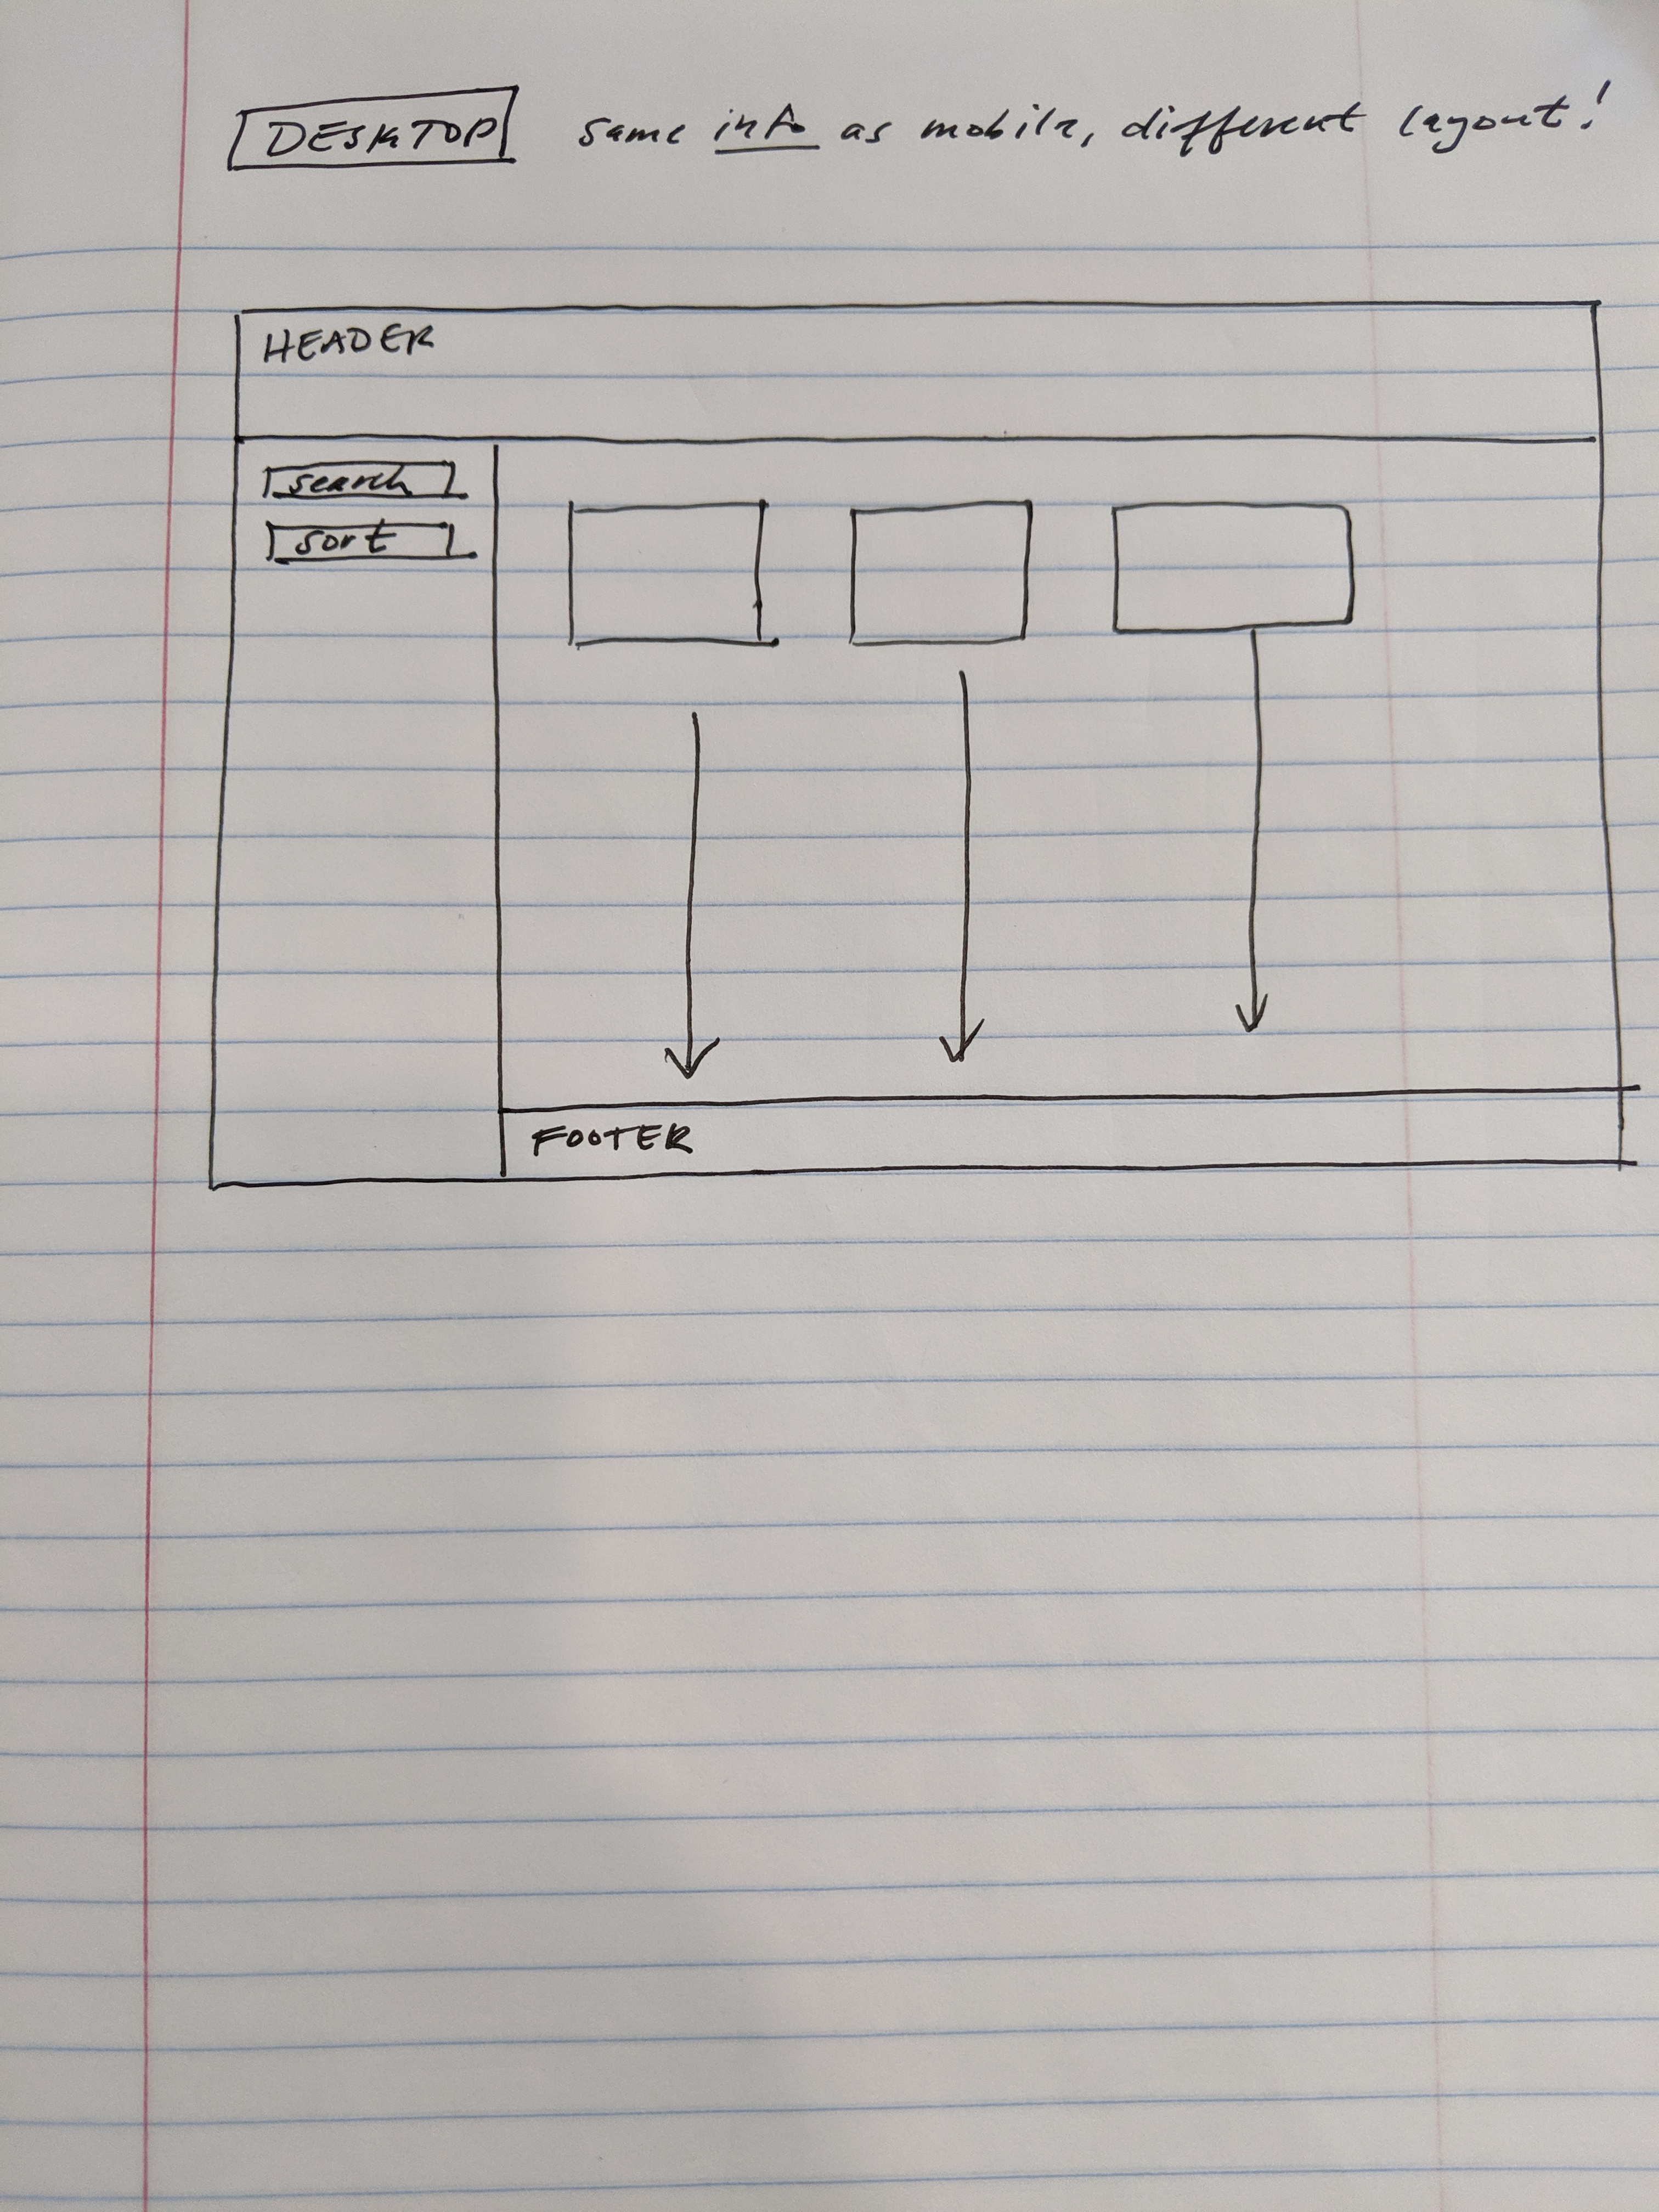 DESKTOP same info as mobile, different layout!
HEADER
search
sort
FOOTER